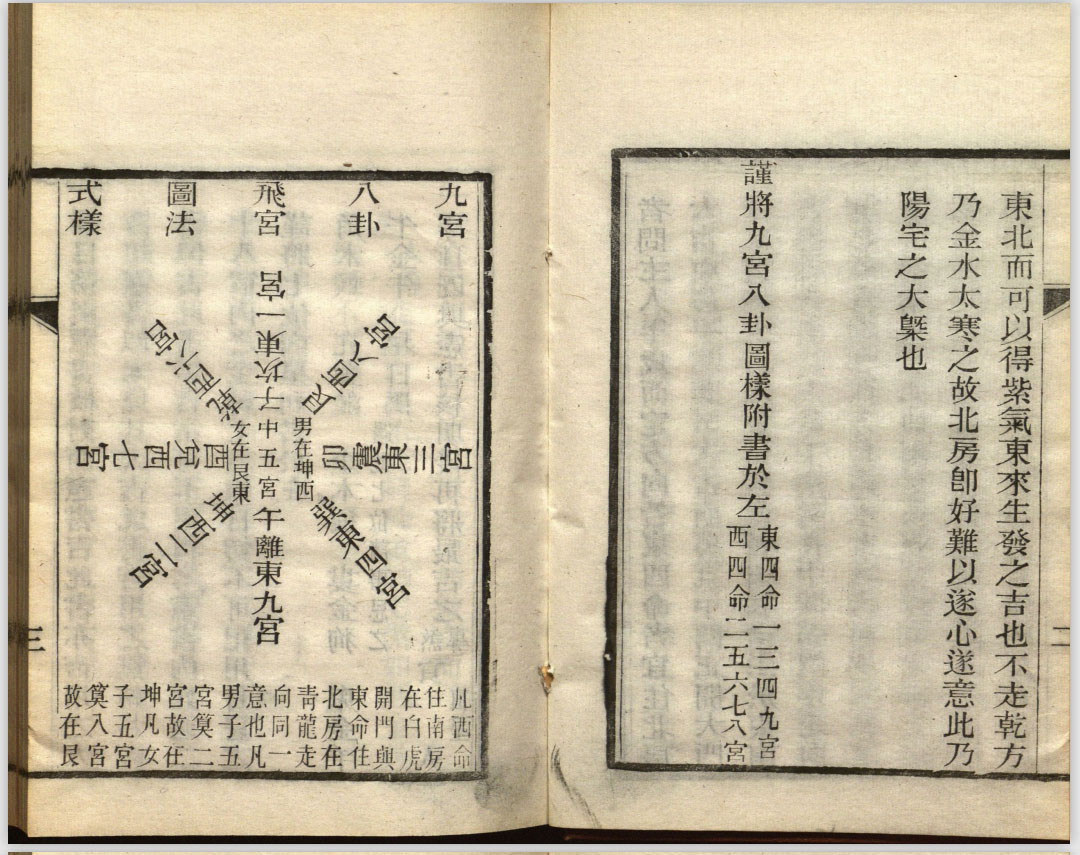 東北而可以得紫氣東來生發之吉也不走乾方
乃金水太寒之故北房卽好難以遂心遂意此乃
陽宅之大槩也
謹將九宮八卦圖樣附書於左
東四命一三四九宮
西四命二五六七八宮
九宮
八卦
飛宮
圖法
式樣
子坎東一宮
艮西八宮
卯震東三宮
巽東四宮
午離東九宮
坤西二宮
酉兌西七宮
乾西六宮
中五宮
男在坤西
女在艮東
凡西命
住南房
在白虎
開門與
東命住
北房在
靑龍走
向同一
意也凡
男子五
宮筭二
宮故在
坤凡女
子五宮
筭八宮
故在艮
二
三